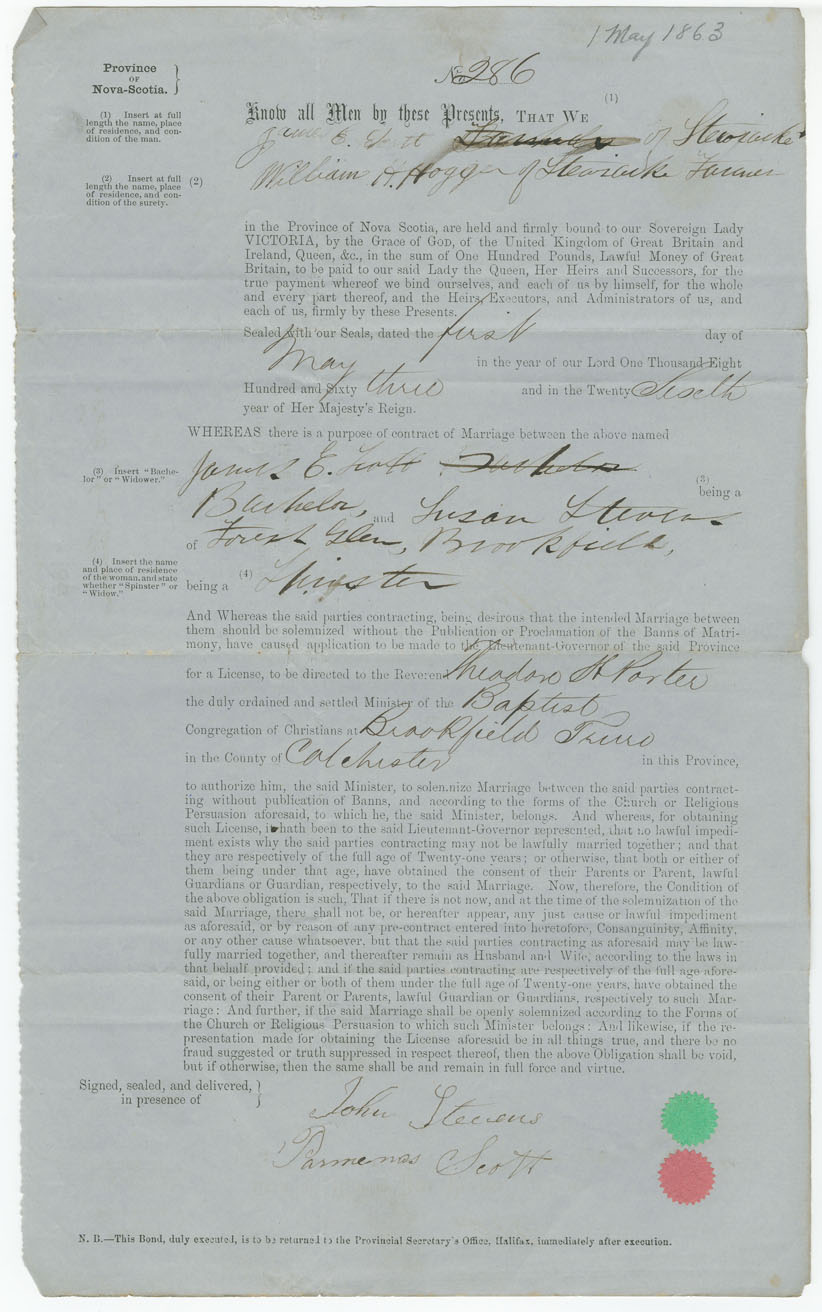 1 May 1863
Province
OF
Nova-Scotia. }
No 286
(1) Insert at full
length the name, place
of residence, and con-
dition of the man.
Know all Men by these Presents, THAT WE (1)
James E. Scott of Stewiacke
(2) Insert at full
length the name, place
of residence, and con-
dition of the surety.
(2) William H. Hogg of Stewiacke Farmer
in the Province of Nova Scotia, are held and firmly bound to our Sovereign Lady
VICTORIA, by the Grace of GOD, of the United Kingdom of Great Britain and
Ireland, Queen, &c., in the sum of One Hundred Pounds, Lawful Money of Great
Britain, to be paid to our said Lady the Queen, Her Heirs and Successors, for the
true payment whereof we bind ourselves, and each of us by himself, for the whole
and every part thereof, and the Heirs, Executors, and Administrators of us, and
each of us, firmly by these Presents.
Sealed with our Seals, dated the first day of
May in the year of our Lord One Thousand Eight
Hundred and Sixty three and in the Twenty Sixth
year of Her Majesty's Reign.
WHEREAS there is a purpose of contract of Marriage between the above named
(3) Insert "Bache-
lor" or "Widower."
James E. Scott Bachelor (3) being a
Bachelor, and Susan Stevens
of Forest Glen, Brookfield,
(4) Insert the name
and place of residence
of the woman, and state
whether "Spinster" or
"Widow."
being a (4) Spinster
And Whereas the said parties contracting, being desirous that the intended Marriage between
them should be solemnized without the Publication or Proclamation of the Banns of Matri-
mony, have caused application to be made to the Lieutenant-Governor of the said Province
for a License, to be directed to the Reverend Theodore H Porter
the duly ordained and settled Minister of the Baptist
Congregation of Christians at Brookfield Truro
in the County of Colchester in this Province,
to authorize him, the said Minister, to solemnize Marriage between the said parties contract-
ing without publication of Banns, and according to the forms of the Church or Religious
Persuasion aforesaid, to which he, the said Minister, belongs. And whereas, for obtaining
such License, it hath been to the said Lieutenant-Governor represented, that no lawful impedi-
ment exists why the said parties contracting may not be lawfully married together; and that
they are respectively of the full age of Twenty-one years; or otherwise, that both or either of
them being under that age, have obtained the consent of their Parents or Parent, lawful
Guardians or Guardian, respectively, to the said Marriage. Now, therefore, the Condition of
the above obligation is such, That if there is not now, and at the time of the solemnization of the
said Marriage, there shall not be, or hereafter appear, any just cause or lawful impediment
as aforesaid, or by reason of any pre-contract entered into heretofore, Consanguinity, Affinity,
or any other cause whatsoever, but that the said parties contracting as aforesaid may be law-
fully married together, and thereafter remain as Husband and Wife, according to the laws in
that behalf provided; and if the said parties contracting are respectively of the full age afore-
said, or being either or both of them under the full age of Twenty-one years, have obtained the
consent of their Parent or Parents, lawful Guardian or Guardians, respectively to such Mar-
riage: And further, if the said Marriage shall be openly solemnized according to the Forms of
the Church or Religious Persuasion to which such Minister belongs: And likewise, if the re-
presentation made for obtaining the License aforesaid be in all things true, and there be no
fraud suggested or truth suppressed in respect thereof, then the above Obligation shall be void,
but if otherwise, then the same shall be and remain in full force and virtue.
Signed, sealed, and delivered, }
in presence of }
John Stevens
Parmenas Scott
N. B.—This Bond, duly executed, is to be returned to the Provincial Secretary's Office, Halifax, immediately after execution.